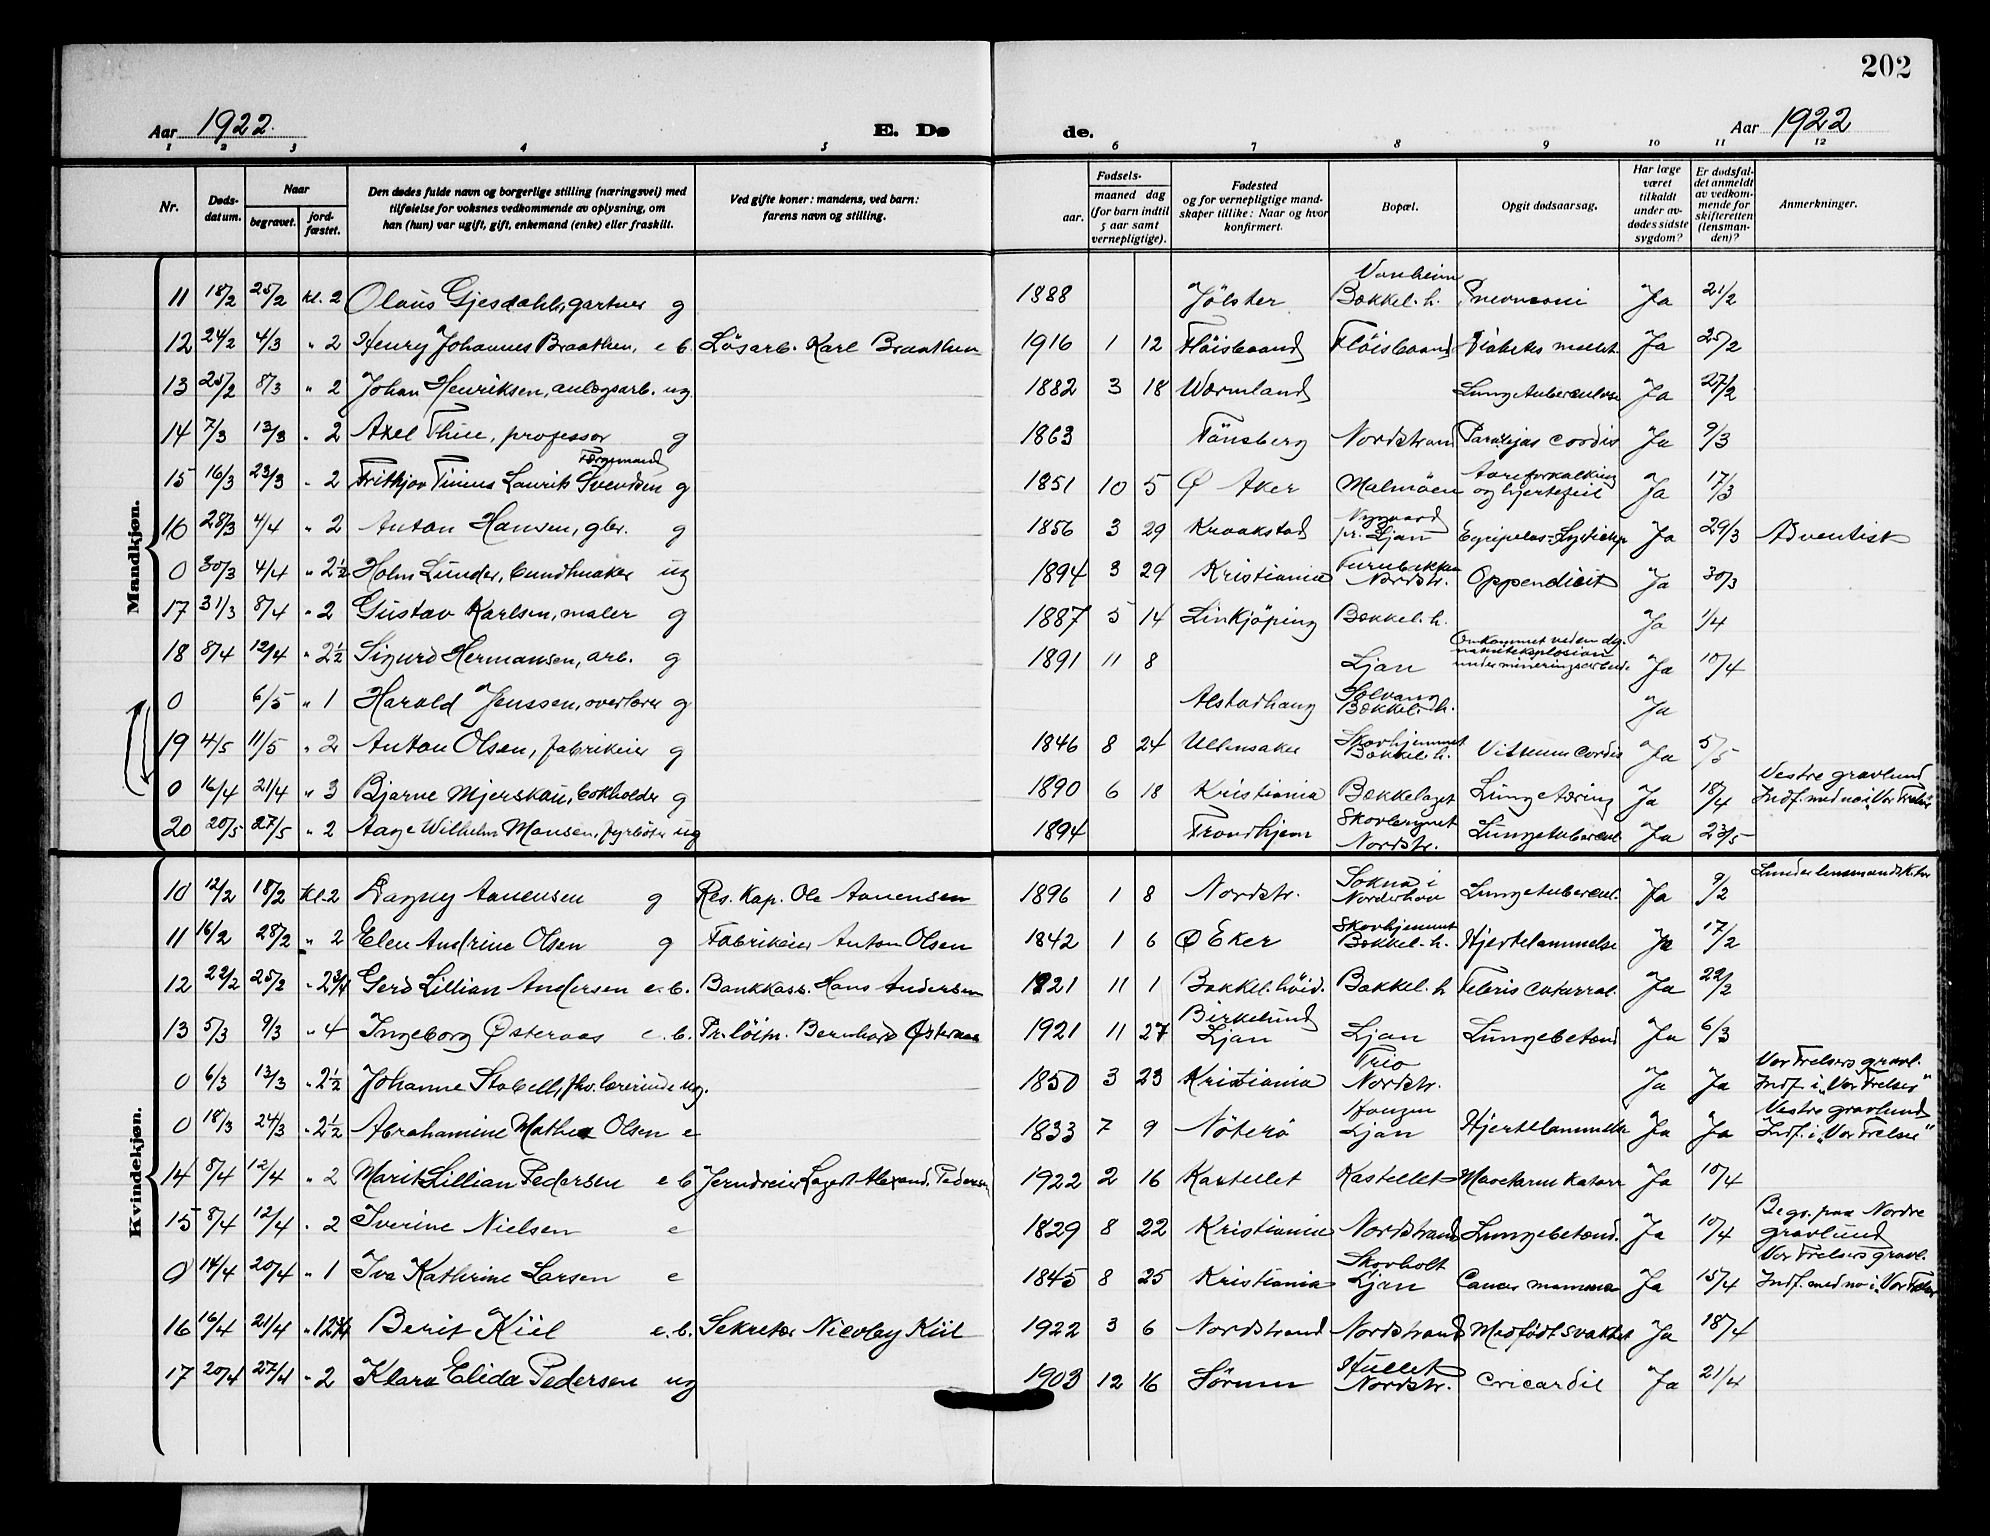 202
Aar 1922. E. Dø
de. Aar 1922
1 2 3 4 5
6 7 8 9 10 11 12
Nr.
Døds-
datum.
Naar
begravet.
jord-
fæstet.
Den dødes fulde navn og borgerlige stilling (næringsvei) med
tilføielse for voksnes vedkommende av oplysning, om
han (hun) var ugift, gift, enkemand (enke) eller fraskilt.
Ved gifte koner: mandens, ved barn:
farens navn og stilling.
Fødsels-
aar.
maaned dag
(for barn indtil
5 aar samt
vernepligtige).
Fødested
og for vernepligtige mand-
skaper tillike: Naar og hvor
konfirmert.
Bopæl.
Opgit dødsaarsag.
Har læge
været
tilkaldt
under av-
dødes sidste
sygdom?
Er dødsfal-
det anmeldt
av vedkom-
mende for
skifteretten
(lensman-
den)?
Anmerkninger.
Mandkjøn.
11 18/2 25/2 kl. 2 Olaus Gjesdahl, gartner g 1888 Jölster Bækkel. h. Ja 21/2
12 24/2 4/3 " 2 Henry Johannes Braathen, e. b. Lösarb. Karl Braathen 1916 1 12 Flöisbaand Flöisbaand Diabetes mellit. Ja 25/2
13 25/2 8/3 " 2 Johan Henriksen, anlægsarb. ug 1882 3 18 Wærmland Lungetuberculose Ja 27/2
14 7/3 13/3 " 2 Axel Thue, professor g 1863 Tönsberg Nordstrand Paralysis cordis Ja 9/3
Færgemand
15 16/3 23/3 " 2 Frithjov Tinius Laurits Svendsen g 1851 10 5 Ø Aker Malmöen Aareforkalkning og hjertefeil Ja 17/3
16 28/3 4/4 " 2 Anton Hansen, gbr. g 1856 3 29 Kraakstad Nygaard pr. Ljan Ja 29/3 Adventist
0 30/3 4/4 " 2½ Holm Lunder, buntmaker ug 1894 3 29 Kristiania Furubakken Nordstr. Appendicit Ja 30/3
17 31/3 8/4 " 2 Gustav Karlsen, maler g 1887 5 14 Linkjöping Bækkel. h. Ja 1/4
18 8/4 12/4 " 2½ Sigurd Hermansen, arb. g 1891 11 8 Ljan Omkommet ved en dynamiteksplosion under mineringsarbeide. Ja 10/4
0 6/5 " 1 Harald Jenssen, overlærer g Alstadhaug Solvang Bækkel. h. Ja
19 4/5 11/5 " 2 Anton Olsen, fabrikeier g 1846 8 24 Ullensaker Skovhjemmet Bækkel. h. Vitium cordis Ja 5/5
Vestre gravlund
0 16/4 21/4 " 3 Bjarne Mjerskau, bokholder g 1890 6 18 Kristiania Bækkelaget Lungetæring Ja 18/4 Indf. med no i "Vor Frelser"
20 20/5 27/5 " 2 Aage Wilhelm Monsen, fyrböter ug 1894 Trondhjem Nordstr. Lungetubercul. Ja 23/5
Kvindekjøn.
10 12/2 18/2 Kl. 2 Dagny Aanensen g Res. Kap. Ole Aanensen 1896 1 8 Nordstr. Sokna i Norderhov Lungetubercul. Ja 9/2
11 16/2 28/2 " 2 Elen Andrine Olsen g Fabrikeier Anton Olsen 1842 1 6 Ø Eker Skovhjemmet Bækkel. h. Hjertelammelse Ja 17/2
12 22/2 25/2 " 2¾ Gerd Lillian Andersen e. b. Bankkass. Hans Andersen 1921 11 1 Bækkel. höid. Bækkel. h Febris catarral. Ja 22/2
13 5/3 9/3 " 4 Ingeborg Østeraas e. b. Pr. löitn. Bernhard Østeraas 1921 11 27 Birkelund Ljan Ljan Lungebetænd Ja 6/3
Vor Frelsers gravl.
0 6/3 13/3 " 2½ Johanne Stabell, fhv. lærerinde ug. 1850 3 23 Kristiania Trio Nordstr. Ja Ja Indf. i "Vor Frelser"
Vestre gravlund
0 18/3 24/3 " 2½ Abrahamine Mathea Olsen e 1833 7 9 Nöterö Haugen Ljan Hjertelammelse Ja Ja Indf. i "Vor Frelser"
14 8/4 12/4 " 2 Marit Lillian Pedersen e b Jerndreier Lagert Alexand. Pedersen 1922 2 16 Kastellet Kastellet Mavetarm katarr Ja 10/4
15 8/4 12/4 " 2 Iverine Nielsen e 1829 8 22 Kristiania Nordstrand Lungebetænd. Ja 10/4 Begr. paa Nordre gravlund
Vor Frelsers gravl.
0 14/4 20/4 " 1 Iva Kathrine Larsen e 1845 8 25 Kristiania Skovholt Ljan Cancer mamma Ja 15/4 Indf. med no i "Vor Frelser"
16 16/4 21/4 " 12¾ Berit Kiil e. b. Sekretær Nicolay Kiil 1922 3 6 Nordstrand Nordstrand Medfödt svakhet Ja 18/4
17 20/4 27/4 " 2 Klara Elida Pedersen ug 1903 12 16 Sörum Hullet Nordstr. Ja 21/4